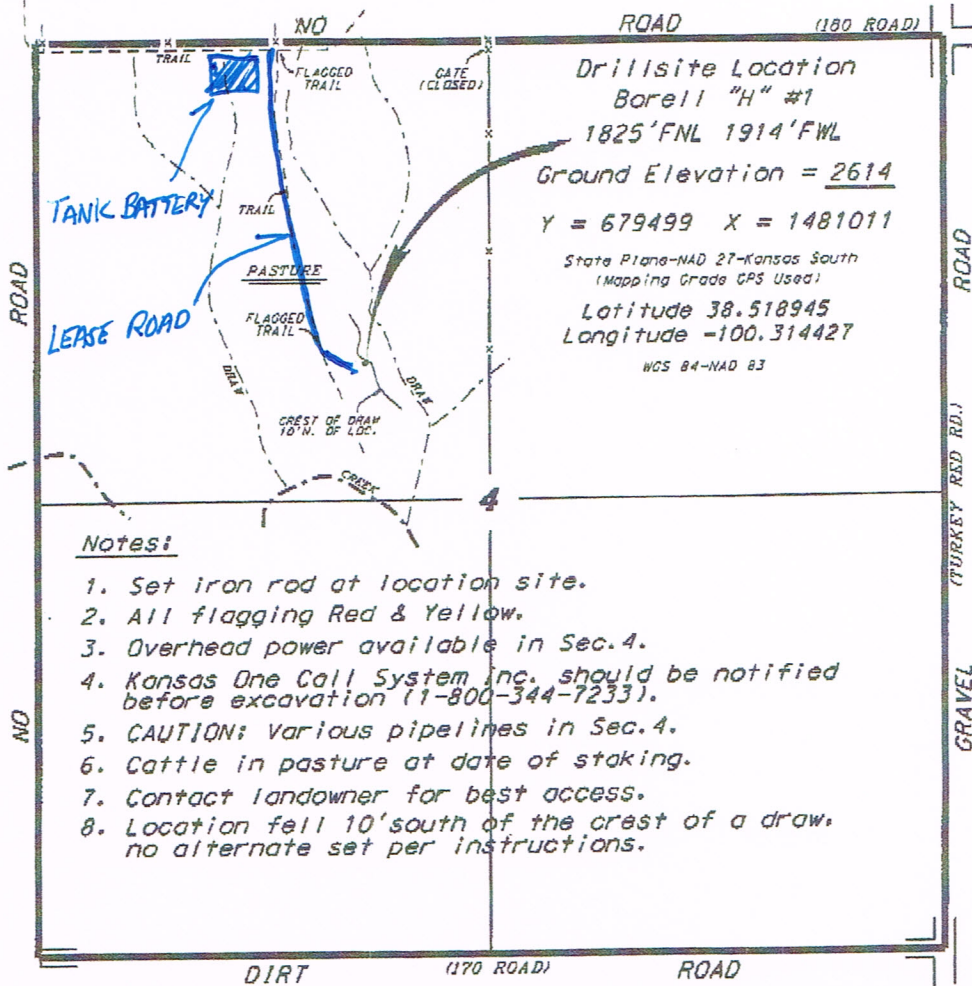 NO ROAD (180 ROAD)
TRAIL
FLAGGED
TRAIL
GATE
(CLOSED)
Drillsite Location
Borell "H" #1
1825'FNL 1914'FWL
Ground Elevation = 2614
Y = 679499 X = 1481011
State Plane-NAD 27-Kansas South
(Mapping Grade GPS Used)
Latitude 38.518945
Longitude -100.314427
WGS 84-NAD 83
TANK BATTERY
TRAIL
PASTURE
LEASE ROAD
FLAGGED
TRAIL
DRAW
DRAW
CREST OF DRAW
10'N. OF LOC.
CREEK
4
NO ROAD
GRAVEL (TURKEY RED RD.) ROAD
Notes:
1. Set iron rod at location site.
2. All flagging Red & Yellow.
3. Overhead power available in Sec.4.
4. Kansas One Call System Inc. should be notified
before excavation (1-800-344-7233).
5. CAUTION: Various pipelines in Sec.4.
6. Cattle in pasture at date of staking.
7. Contact landowner for best access.
8. Location fell 10'south of the crest of a draw,
no alternate set per instructions.
DIRT (170 ROAD) ROAD